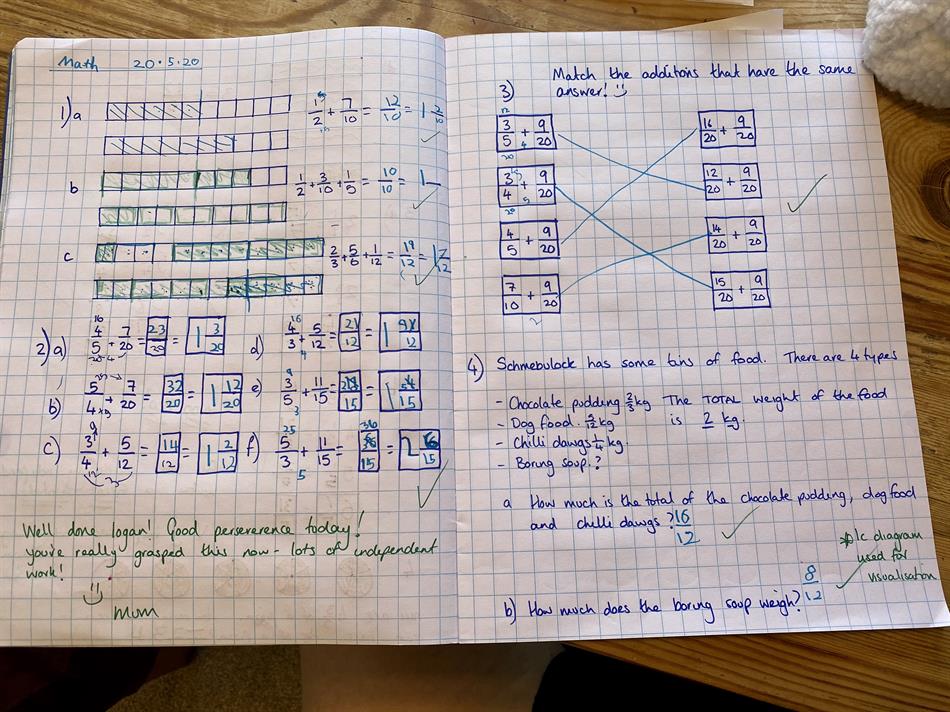 Math 20.5.20
1) a 1/2 + 7/10 = 12/10 = 1 2/10
b 1/2 + 3/10 + 1/5 = 10/10 = 1
c 2/3 + 5/6 + 1/12 = 19/12 = 1 7/12
2) a) 4/5 + 7/20 = 23/20 = 1 3/20
b) 5/4 + 7/20 = 32/20 = 1 12/20
c) 3/4 + 5/12 = 14/12 = 1 2/12
d) 4/3 + 5/12 = 21/12 = 1 9/12
e) 3/5 + 11/15 = /15 = 1 /15
f) 5/3 + 11/15 = 36/15 = 2 6/15
Well done logan! Good perserverence today!
you're really grasped this now - lots of independent
work!
Mum
3) Match the additons that have the same
answer!
3/5 + 9/20 16/20 + 9/20
3/4 + 9/20 12/20 + 9/20
4/5 + 9/20 14/20 + 9/20
7/10 + 9/20 15/20 + 9/20
4) Schmebulock has some tins of food. There are 4 types
- Chocolate pudding 2/3 kg The TOTAL weight of the food
- Dog food 5/12 kg is 2 kg.
- Chilli dawgs 1/4 kg.
- Boring soup.?
a How much is the total of the chocolate pudding, dog food
and chilli dawgs? 16/12
*1c diagram
used for
visualisation
b) How much does the boring soup weigh? 8/12